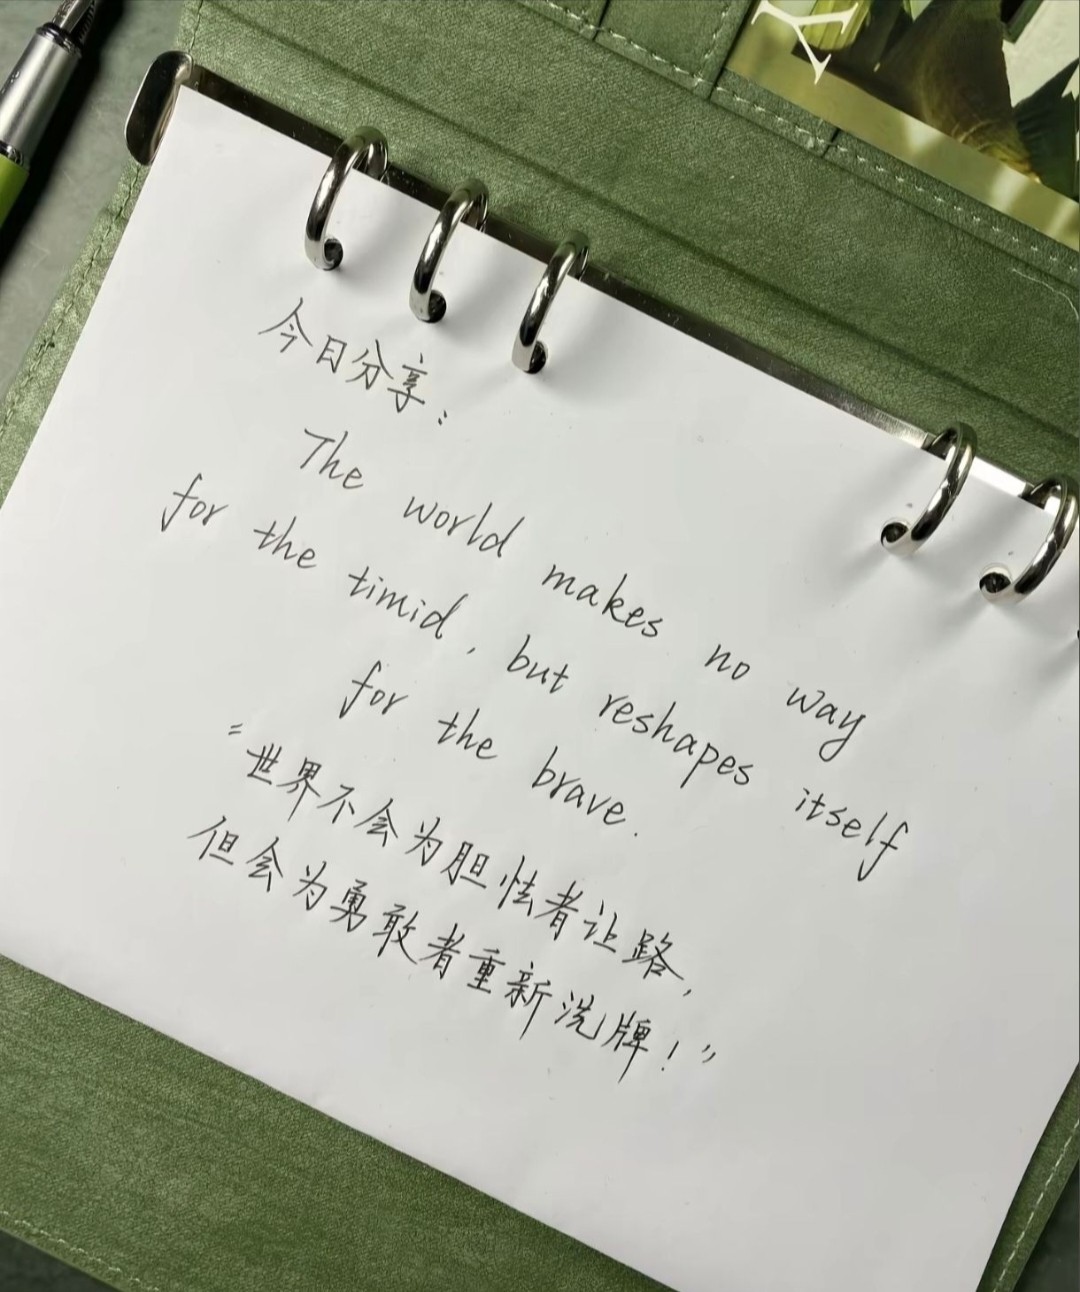 Y
今日分享：
The world makes no way
for the timid, but reshapes itself
for the brave.
“世界不会为胆怯者让路,
但会为勇敢者重新洗牌！”